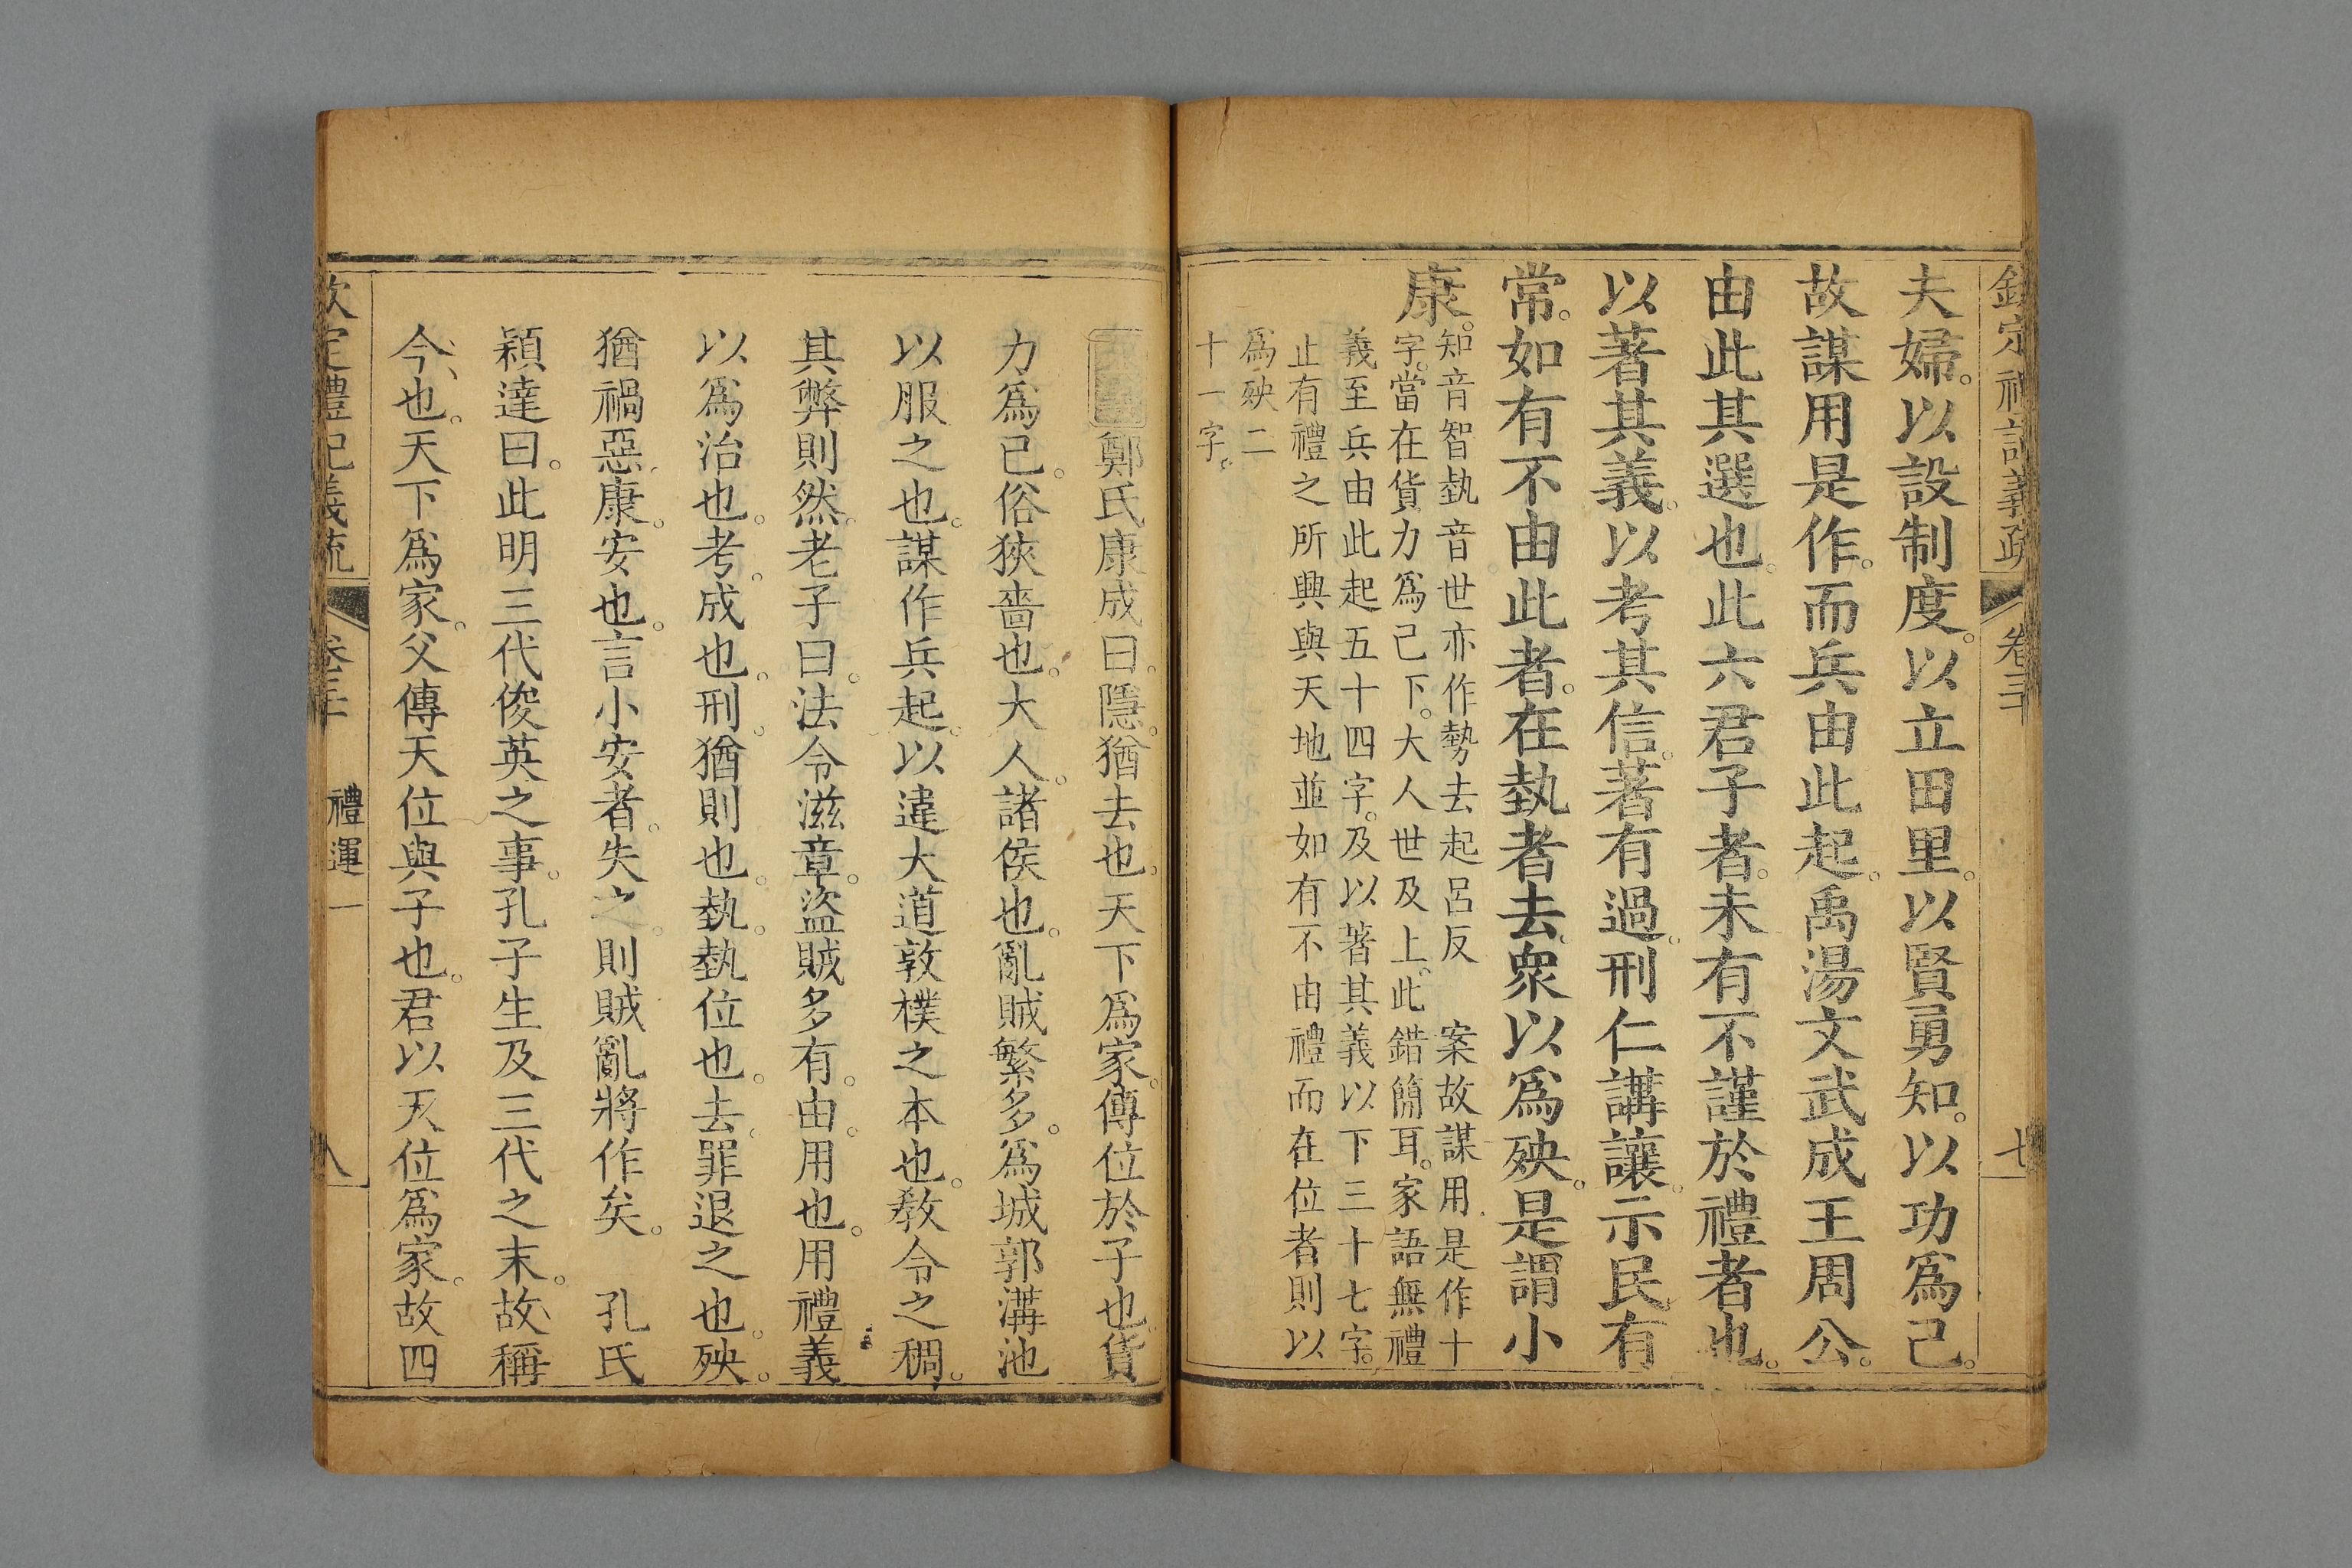 欽定禮記義疏 卷三十 七
夫婦。以設制度。以立田里。以賢勇知。以功爲己。
故謀用是作。而兵由此起。禹湯文武成王周公。
由此其選也。此六君子者。未有不謹於禮者也。
以著其義。以考其信。著有過。刑仁講讓。示民有
常。如有不由此者。在埶者去。衆以爲殃。是謂小
康。
知音智埶音世亦作勢去起呂反　案故謀用是作十
字。當在貨力爲己下。大人世及上。此錯簡耳。家語無禮
義至兵由此起五十四字。及以著其義以下三十七字。
止有禮之所興與天地並如有不由禮而在位者則以
爲殃二
十一字。
鄭氏康成曰。隱。猶去也。天下爲家。傳位於子也。貨
力爲已。俗狹嗇也。大人。諸侯也。亂賊繁多。爲城郭溝池
以服之也。謀作兵起。以違大道敦樸之本也。敎令之稠。
其弊則然。老子曰。法令滋章。盜賊多有。由。用也。用禮義
以爲治也。考。成也。刑。猶則也。埶。埶位也。去。罪退之也。殃。
猶禍惡。康。安也。言小安者。失之。則賊亂將作矣。　孔氏
穎達曰。此明三代俊英之事。孔子生及三代之末。故稱
今也。天下爲家。父傳天位與子也。君以天位爲家。故四
欽定禮記義疏 卷三十 禮運一 八